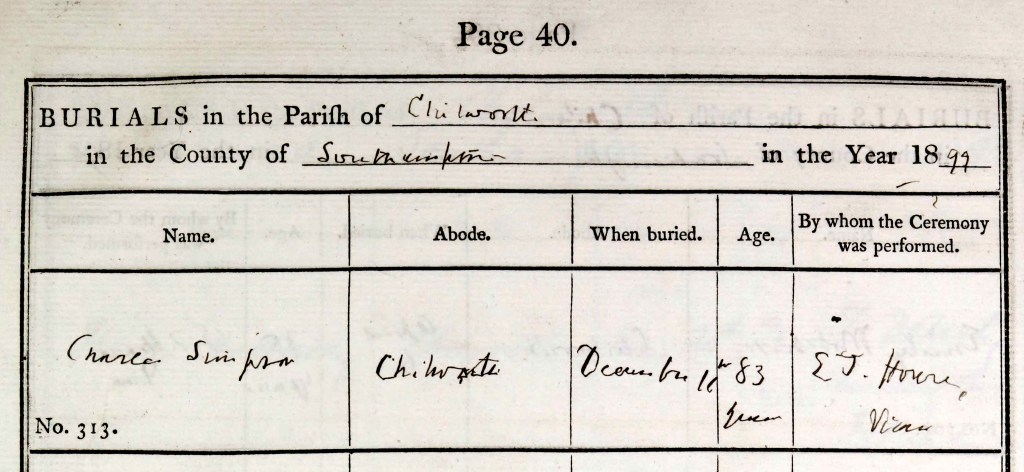 Page 40.
BURIALS in the Pariſh of Chilworth.
in the County of Southampton in the Year 1899
Name. Abode. When buried. Age. By whom the Ceremony
was performed.
Charles Simpson Chilworth December 83 E. T.
years Vicar
No. 313.